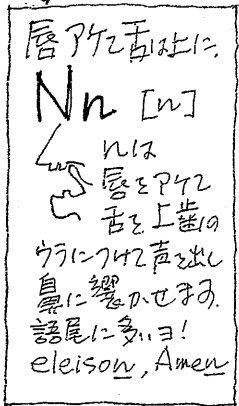 唇アケて舌は上に、
Nn [n]
nは
唇をアケて
舌を上歯の
ウラにつけて声を出し
鼻に響かせます。
語尾に多いヨ!
eleison, Amen